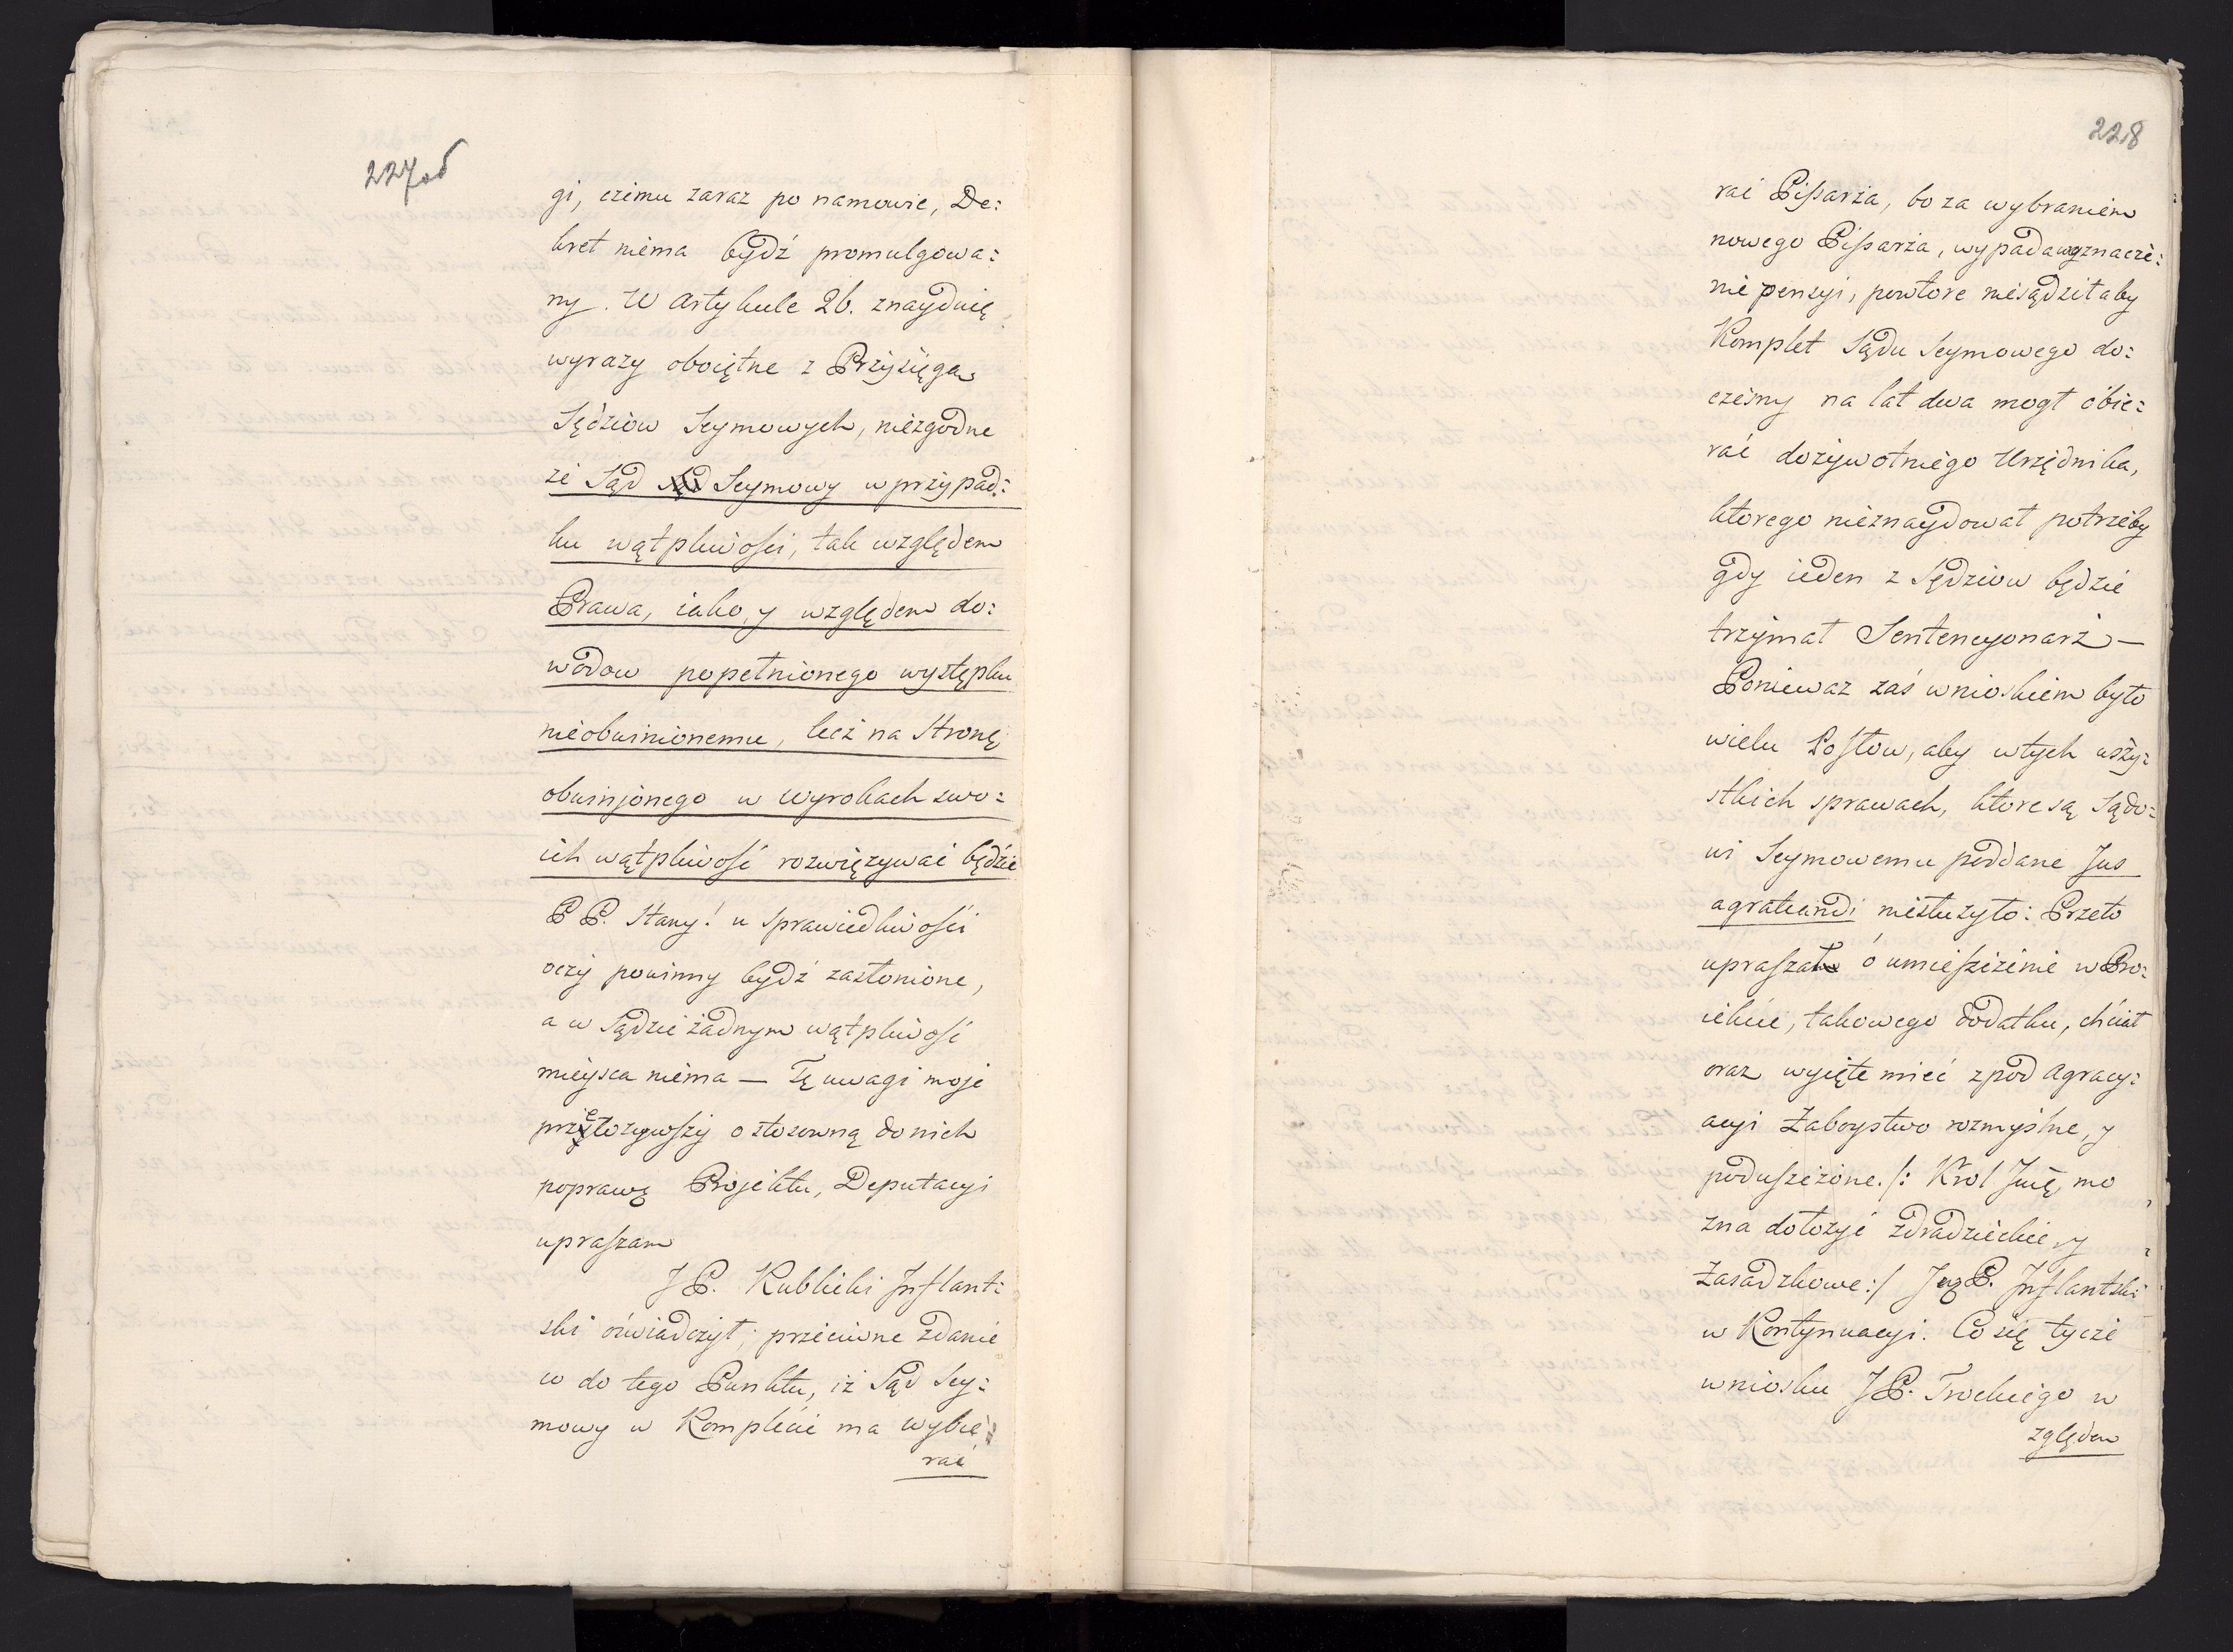 227об
gi, czemu zaraz po namowie, De:
kret niema bydź promulgowa:
ny. W Artykule 26. znayduię
wyrazy oboiętne z Przysięgą
Sędziow Seymowych, niezgodne
że Sąd Seymowy w przypad:
ku wątpliwości, tak względem
Prawa, iako, y względem do:
wodow popełnionego występku
nieobwinionemu, lecz na Stronę
obwinionego w wyrokach swo:
ich wątpliwość rozwięzywać będzie
P P. Stany! u sprawiedliwości
oczy powinny bydź zasłonione,
a w Sądzie żadnym wątpliwość
mieysca niema — Tę uwagi moje
przełożywszy o stosowną do nich
poprawę Projektu, Deputacyi
upraszam
J P. Kublicki Jnflant:
ski oświadczył, przeciwne zdanie
w do tego Punktu, iż Sąd Sey:
mowy w Komplecie ma wybie:
rać
228
rać Pisarza, bo za wybraniem
nowego Pisarza, wypada wyznacze:
nie pensyi, powtore niesądził aby
Komplet Sądu Seymowego do:
czesny na lat dwa mogł obie:
rać dożywotniego Urzędnika,
ktorego nieznaydował potrzeby
gdy ieden z Sędziow będzie
trzymał Sentencyonarz —
Poniewaz zaś wnioskiem było
wielu Posłow, aby w tych wszy:
stkich sprawach, ktore są Sądo:
wi Seymowemu poddane Jus
agratiandi niesłużyło: Przeto
upraszał o umieszczenie w Pro:
iekcie, takowego dodatku, chciał
oraz wyięte mieć z pod Agracy:
acyi Zaboystwo rozmyślne, y
poduszczone. /: Krol Jmć, mo
zna dołożyć zdradzieckie, y
Zasadzkowe :/ Jeg P. Jnflantski
w Kontynuacyi. Co się tycze
wniosku J P. Trockiego w
zględem